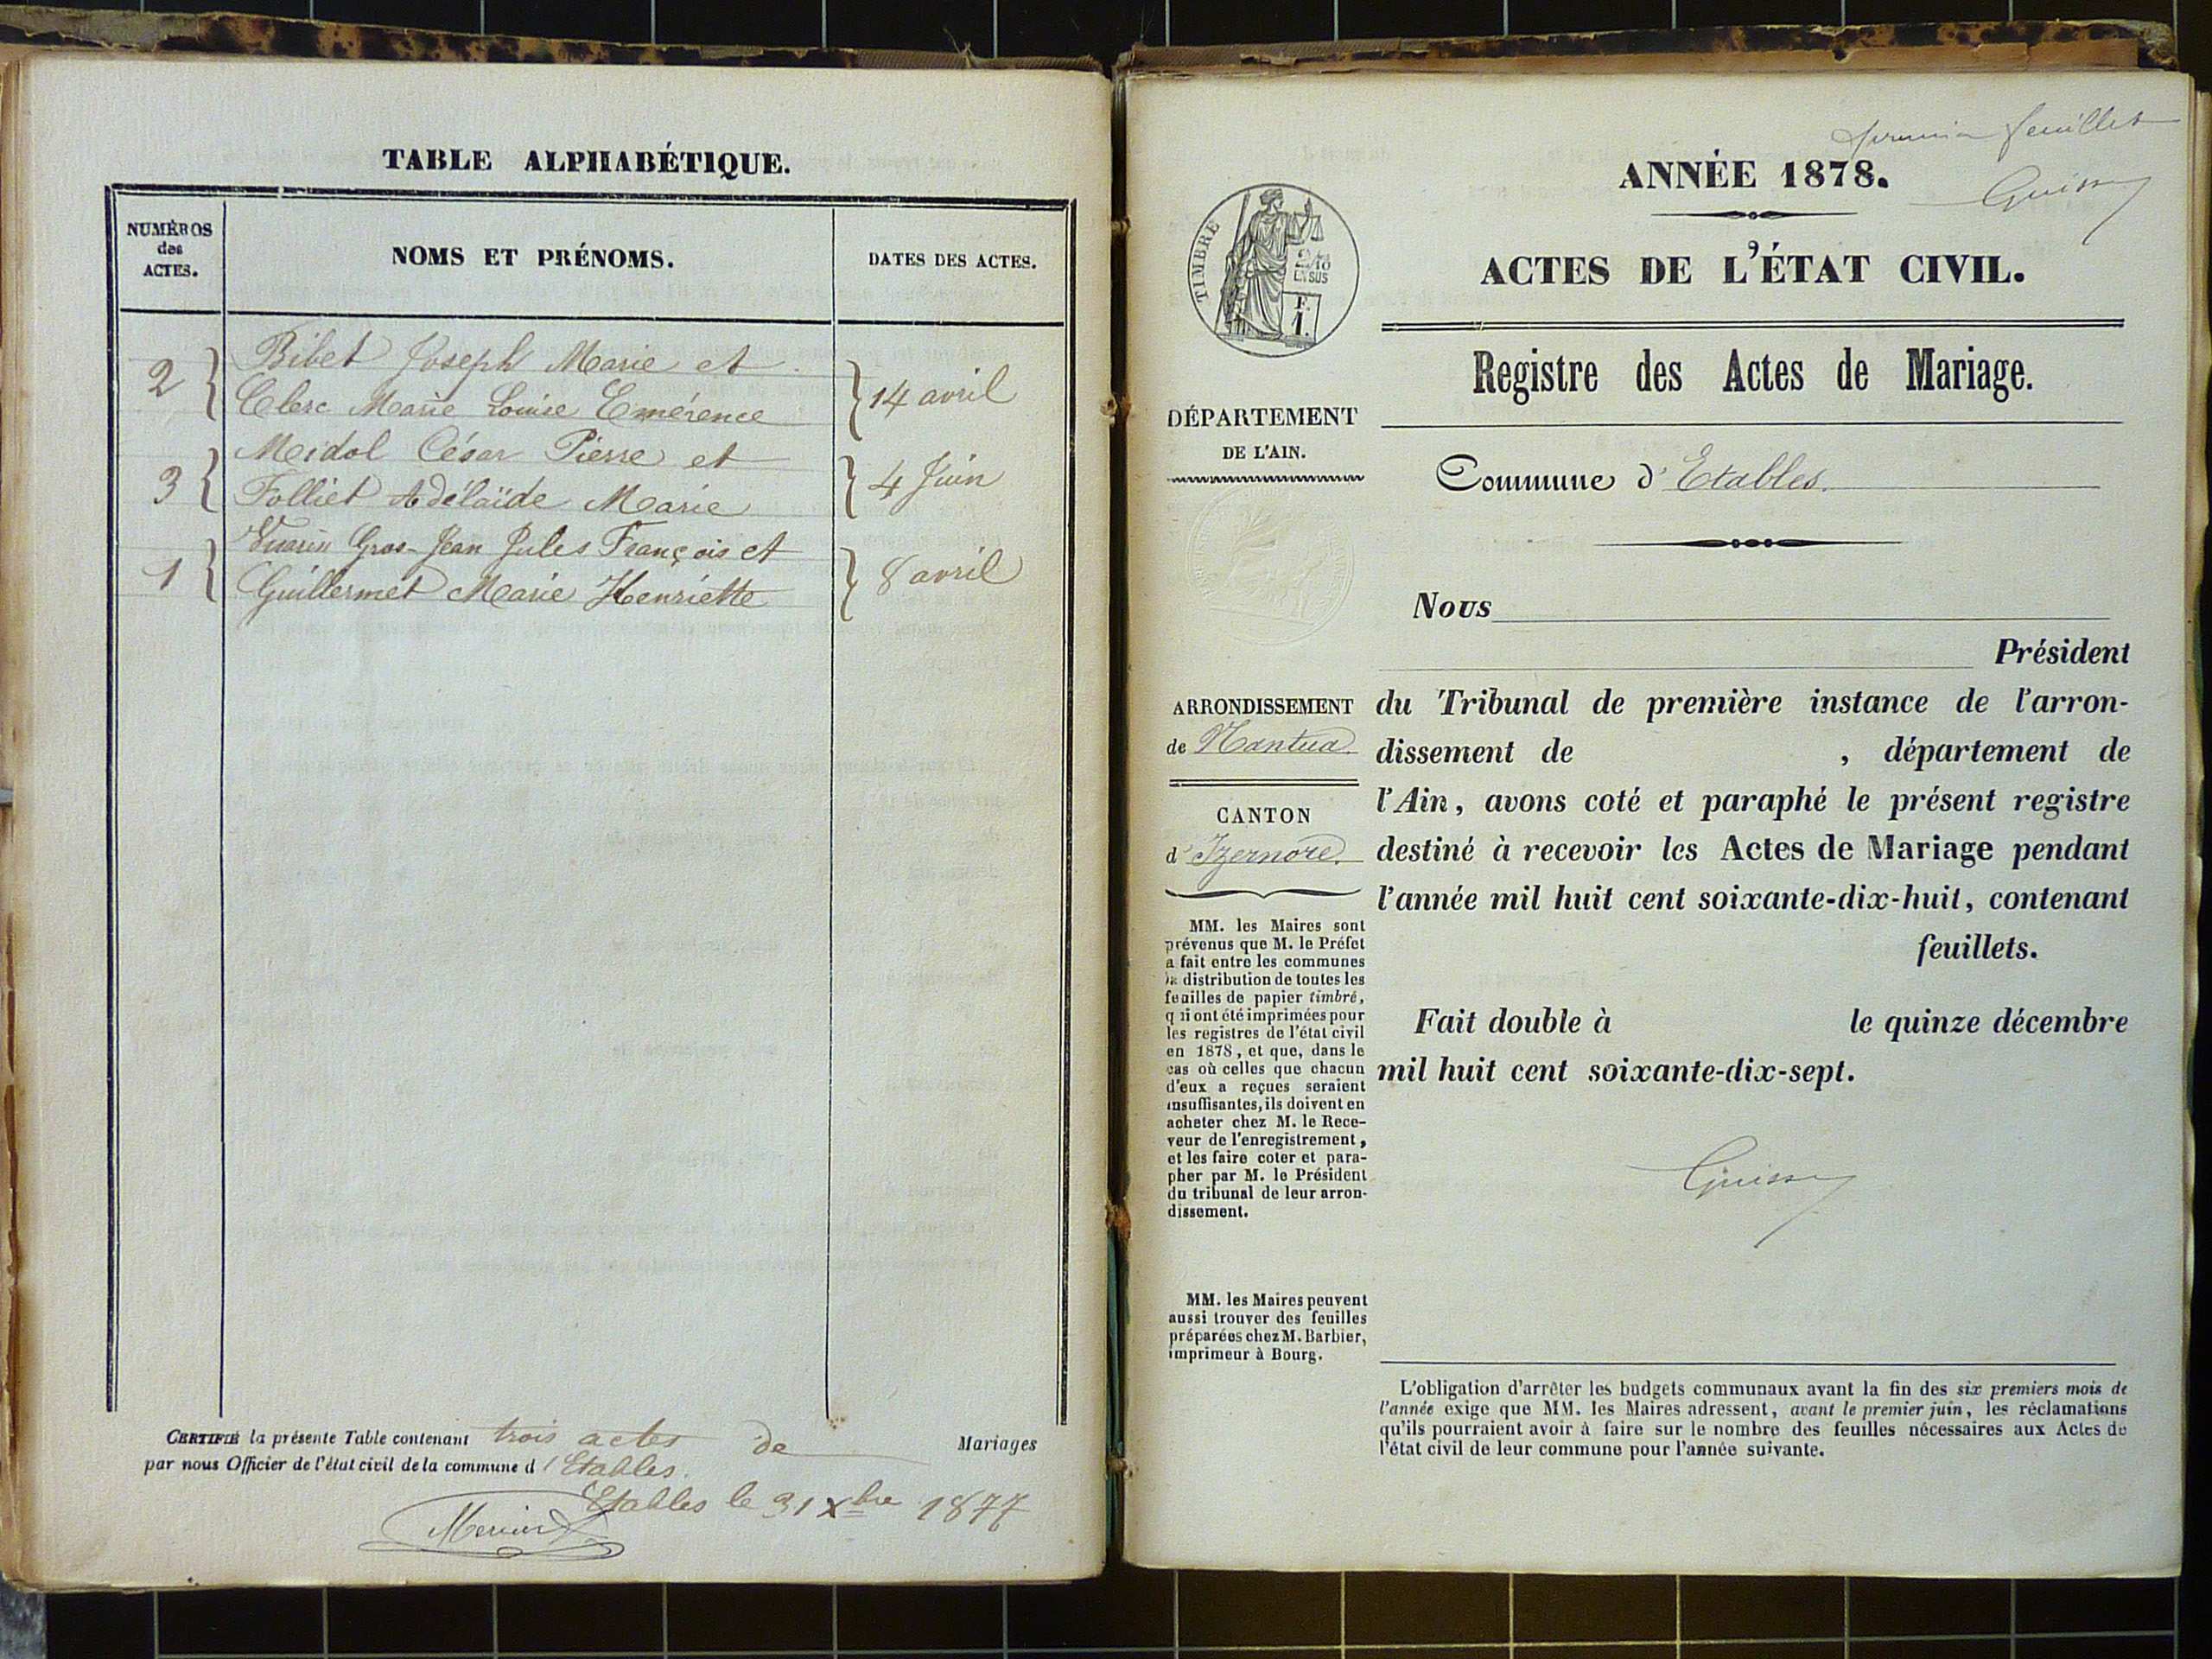 TABLE ALPHABÉTIQUE.
NUMÉROS
des
ACTES.
NOMS ET PRÉNOMS.
DATES DES ACTES.
2
Bibet Joseph Marie et
Clerc Marie Louise Emérence
14 avril
3
Meidol César Pierre et
Folliet Adélaïde Marie
4 Juin
1
Vuarin Gros-Jean Jules François et
Guillermet Marie Henriette
8 avril
CERTIFIÉ la présente Table contenant trois actes de Mariages
par nous Officier de l'état civil de la commune d'Etables.
Etables le 31 Xbre 1877
premier feuillet
ANNÉE 1878.
ACTES DE L'ÉTAT CIVIL.
TIMBRE
2/10
EN SUS
F.
1.
Registre des Actes de Mariage.
DÉPARTEMENT
DE L'AIN.
Commune d'Etables.
Nous
Président
ARRONDISSEMENT
de Nantua.
CANTON
d'Izernore.
du Tribunal de première instance de l'arron-
dissement de , département de
l'Ain, avons coté et paraphé le présent registre
destiné à recevoir les Actes de Mariage pendant
l'année mil huit cent soixante-dix-huit, contenant
feuillets.
Fait double à le quinze décembre
mil huit cent soixante-dix-sept.
MM. les Maires sont
prévenus que M. le Préfet
a fait entre les communes
la distribution de toutes les
feuilles de papier timbré,
qui ont été imprimées pour
les registres de l'état civil
en 1878, et que, dans le
cas où celles que chacun
d'eux a reçues seraient
insuffisantes, ils doivent en
acheter chez M. le Rece-
veur de l'enregistrement,
et les faire coter et para-
pher par M. le Président
du tribunal de leur arron-
dissement.
MM. les Maires peuvent
aussi trouver des feuilles
préparées chez M. Barbier,
imprimeur à Bourg.
L'obligation d'arrêter les budgets communaux avant la fin des six premiers mois de
l'année exige que MM. les Maires adressent, avant le premier juin, les réclamations
qu'ils pourraient avoir à faire sur le nombre des feuilles nécessaires aux Actes de
l'état civil de leur commune pour l'année suivante.